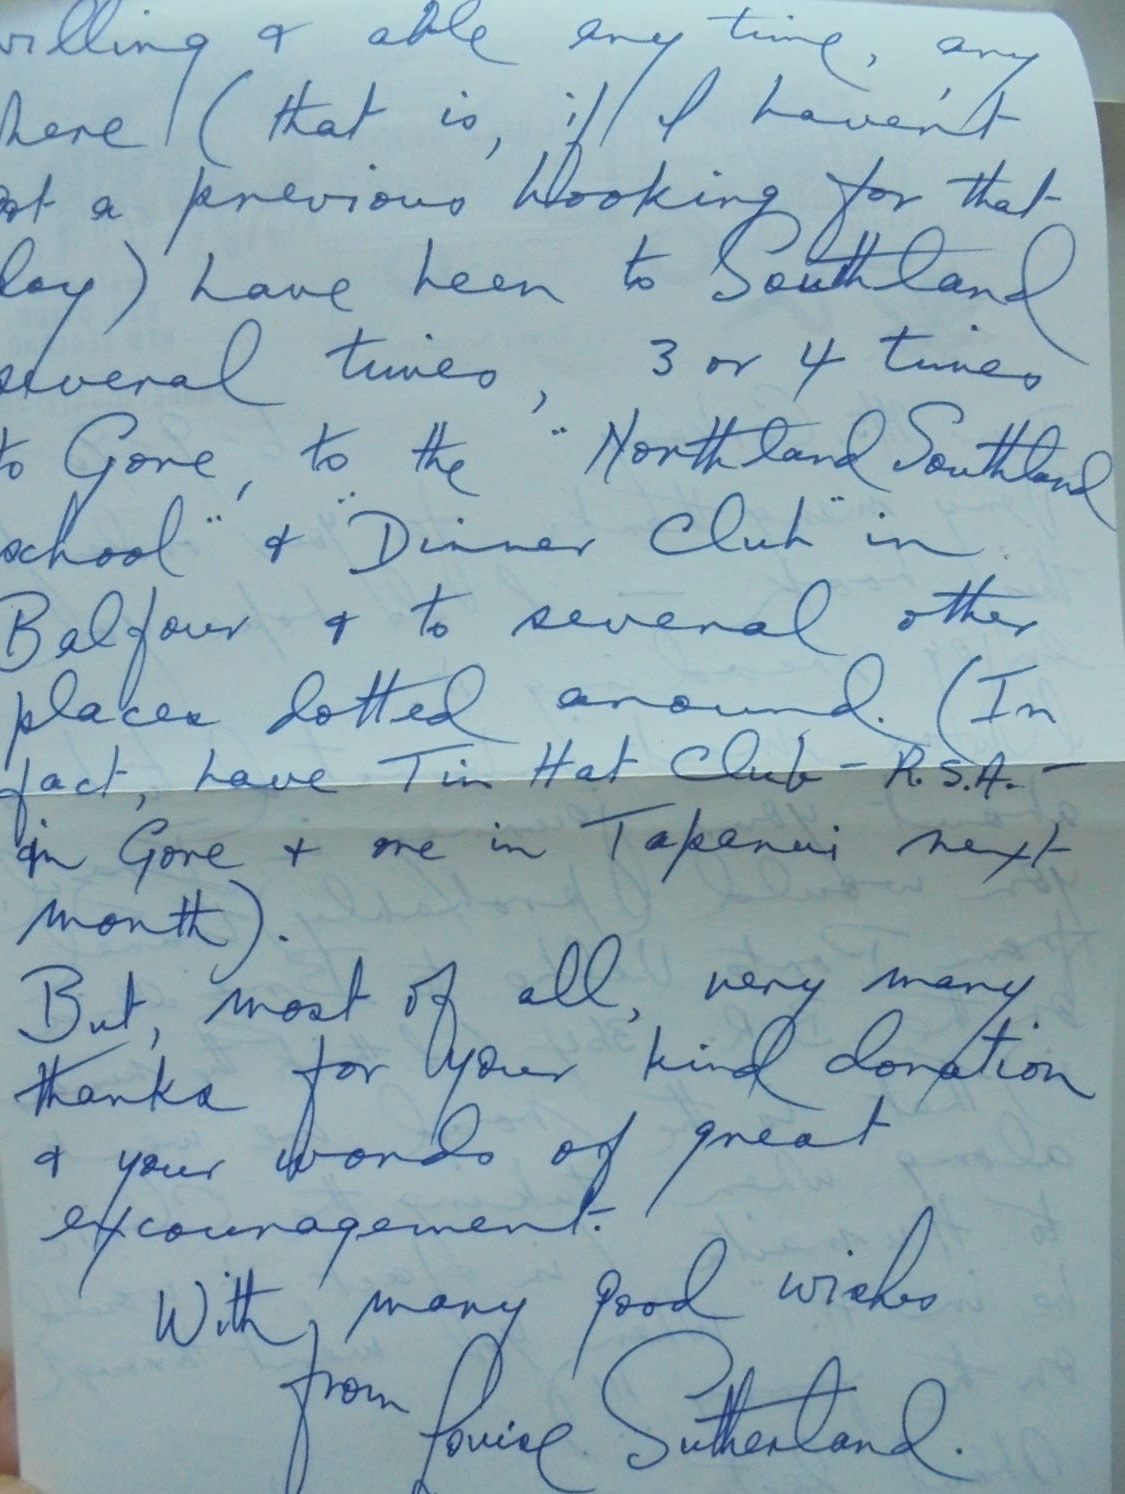 willing & able any time, any
here (that is, if I haven't
got a previous booking for that
day) have been to Southland
several times, 3 or 4 times
to Gore, to the "Northland Southland
school" & "Dinner Club" in
Balfour & to several other
places dotted around. (In
fact, have Tin Hat Club - R.S.A. -
in Gore & one in Tapanui next
month).
But, most of all, very many
thanks for your kind donation
& your words of great
encouragement.
With many good wishes
from
Louise Sutherland.